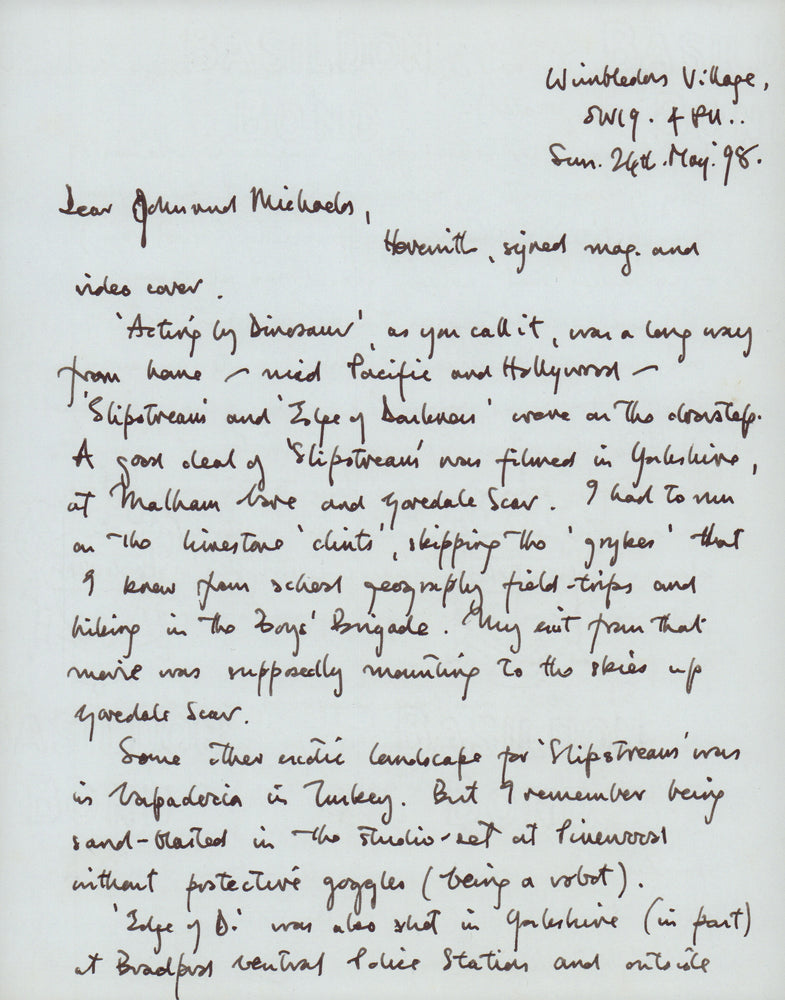 Wimbledon Village,
SW19. 4 PU..
Sun. 24th. May. '98.
Dear John and Michaela,
Herewith, signed mag. and
video cover.
'Acting by Dinosaur', as you call it, was a long way
from home – mid Pacific and Hollywood –
'Slipstream' and 'Edge of Darkness' were on the doorstep.
A good deal of 'Slipstream' was filmed in Yorkshire,
at Malham Cove and Goredale Scar. I had to run
on the limestone 'clints', skipping the 'grykes' that
I knew from school geography field-trips and
hiking in the Boys' Brigade. My exit from that
movie was supposedly mounting to the skies up
Goredale Scar.
Some other exotic landscape for 'Slipstream' was
in Capadocia in Turkey. But I remember being
sand-blasted in the studio-set at Pinewood
without protective goggles (being a robot).
'Edge of D.' was also shot in Yorkshire (in part)
at Bradford Central Police Station and outside